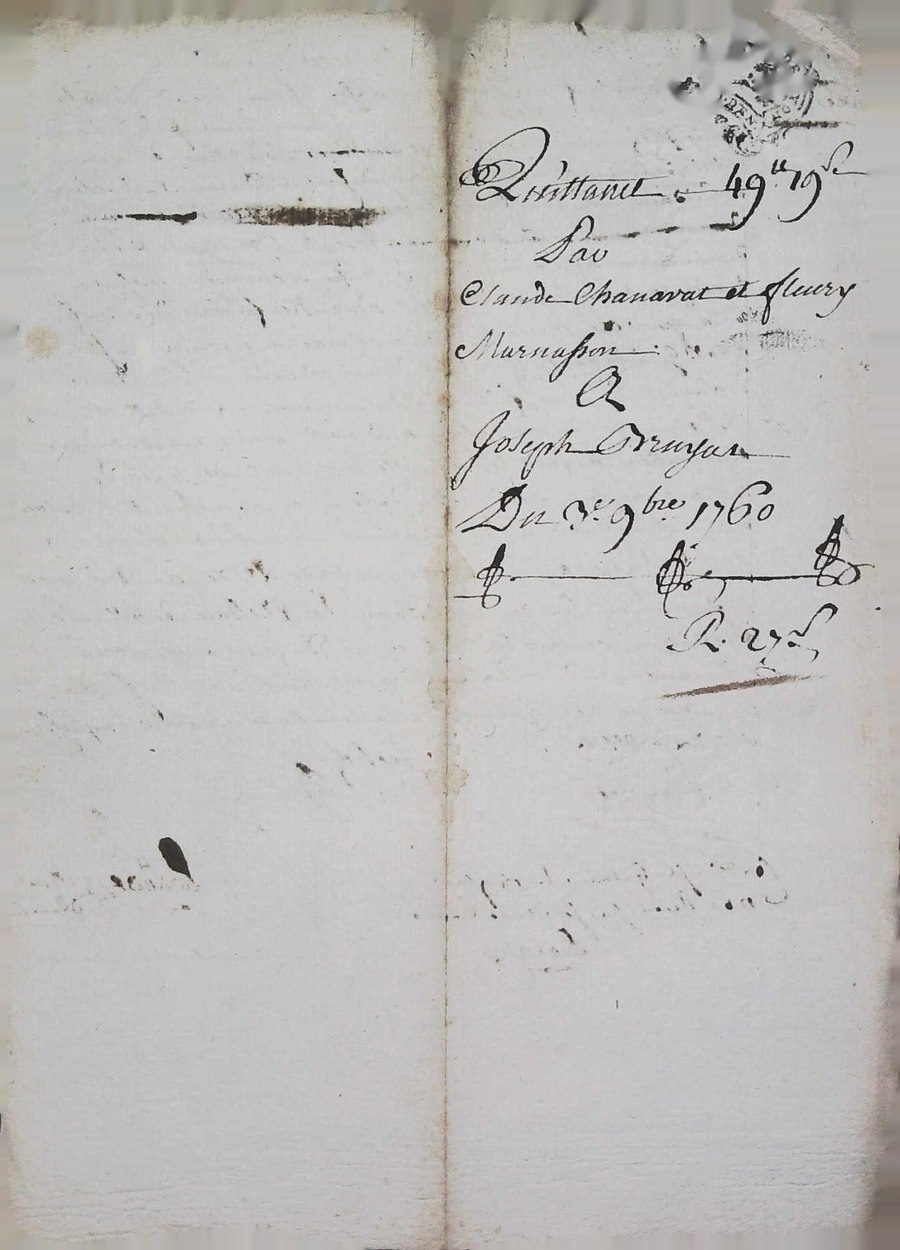 Quittance . 49ᵗᵗ 19ˢ
Par
Claude Chanavat et fleury
Marnasson
A
Joseph Bruyas
Du 3ᵉ 9ᵇʳᵉ 1760
R. 27ˢ